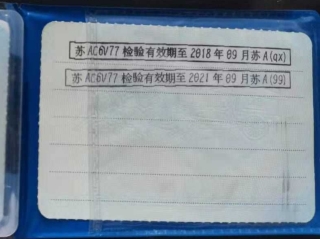 苏AC6V77检验有效期至2018年09月苏A(qx)
苏AC6V77检验有效期至2021年09月苏A(99)